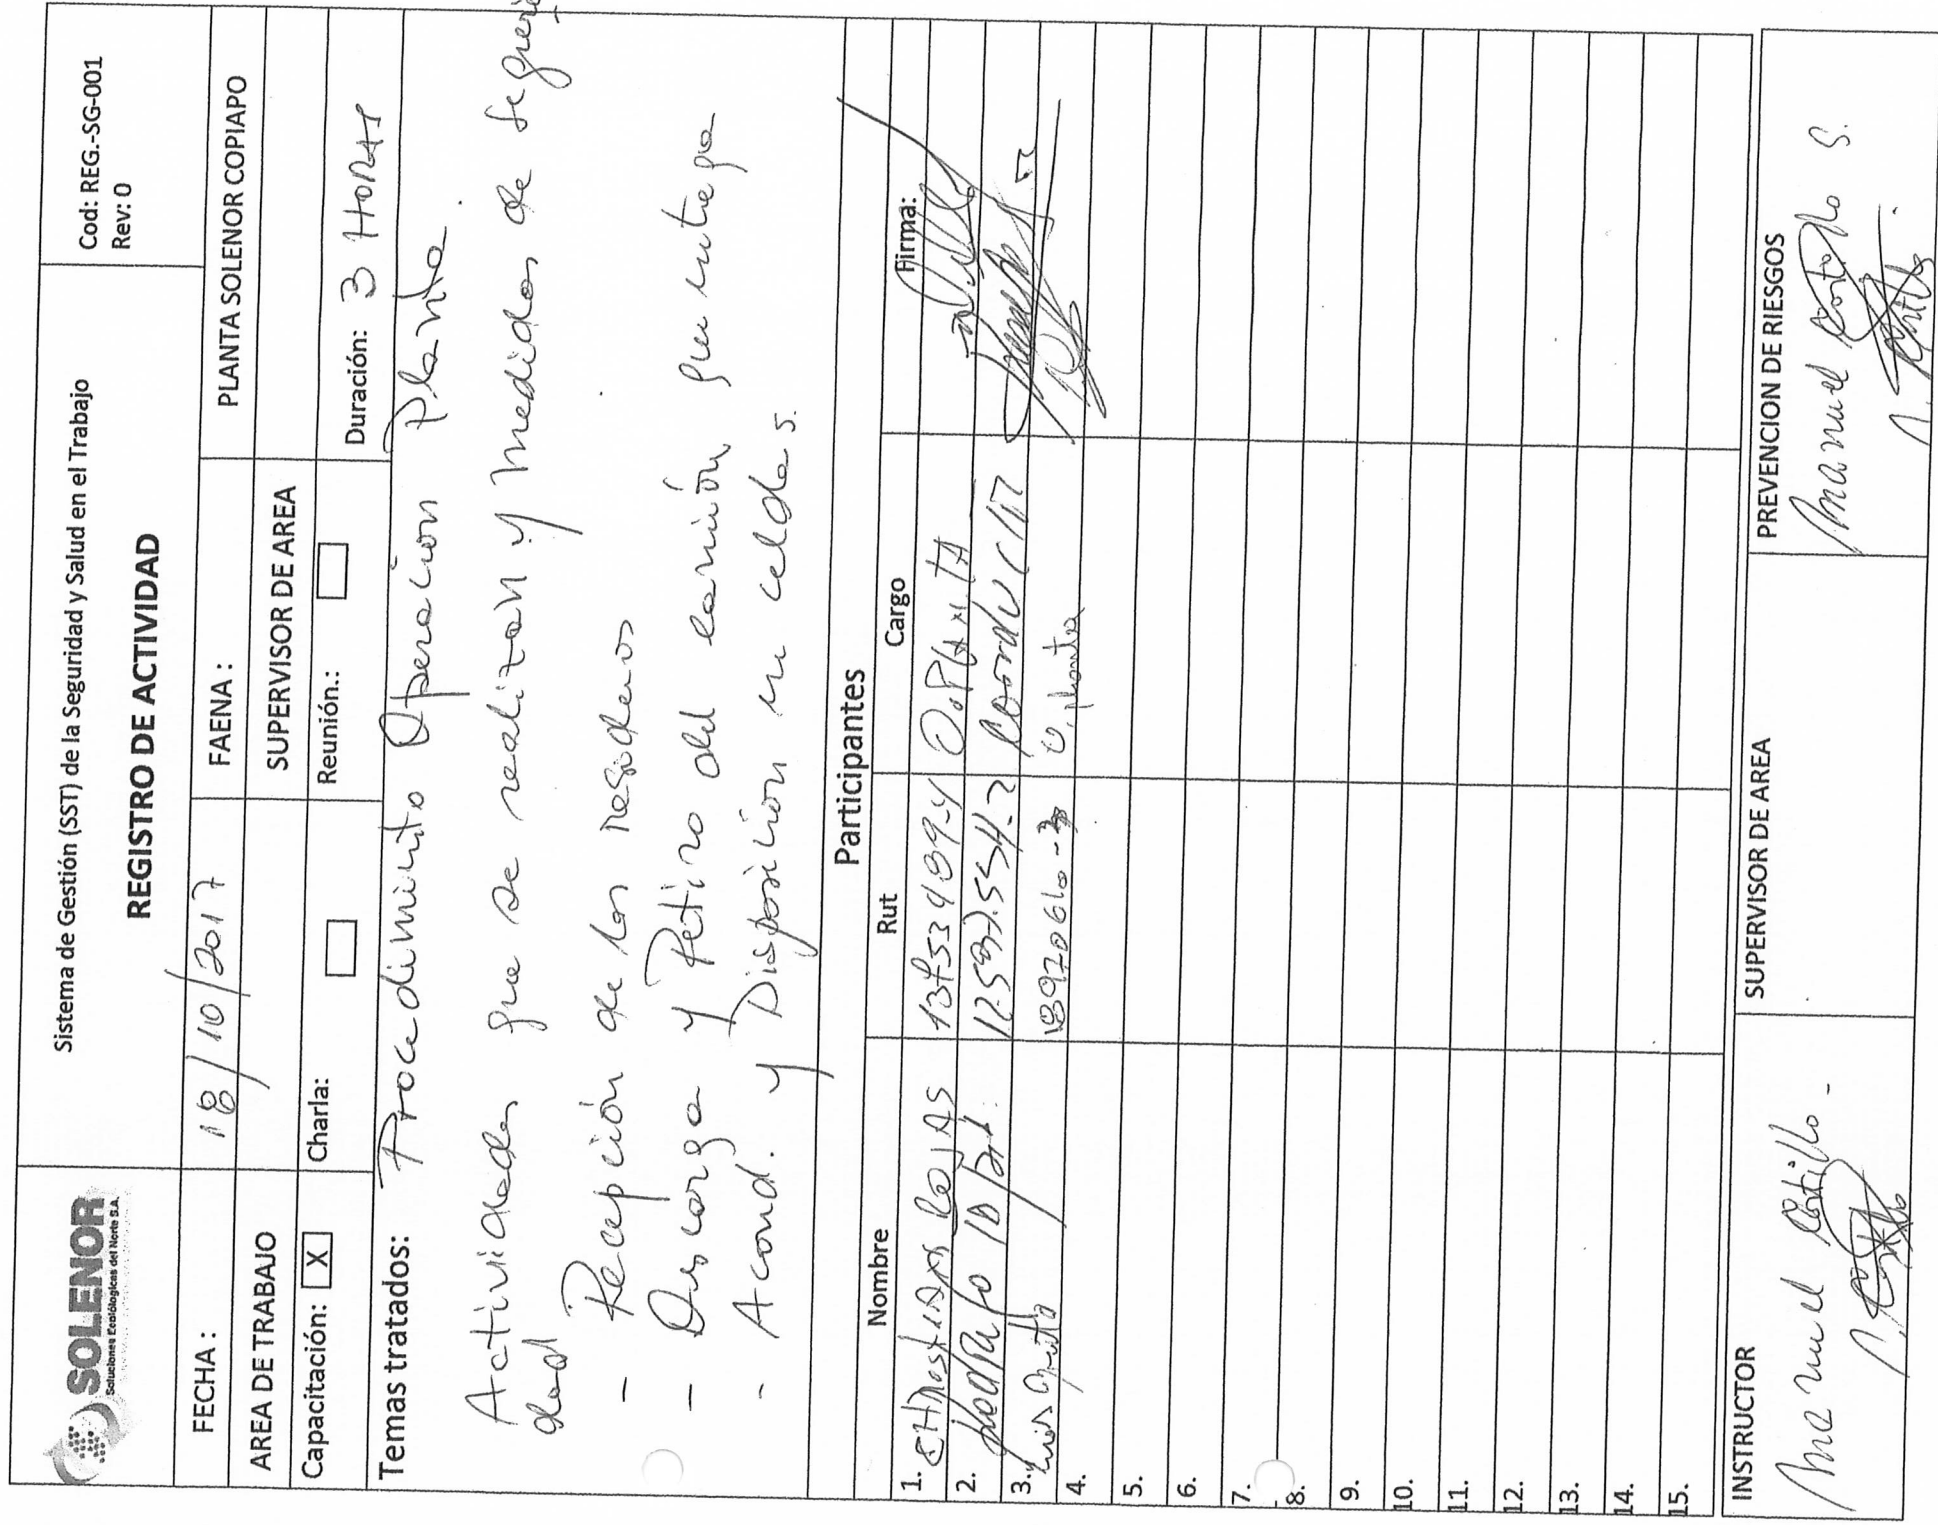 SOLENOR
Soluciones Ecológicas del Norte S.A.
Sistema de Gestión (SST) de la Seguridad y Salud en el Trabajo
REGISTRO DE ACTIVIDAD
Cod: REG.-SG-001
Rev: 0
FECHA : 18/10/2017 FAENA : PLANTA SOLENOR COPIAPO
AREA DE TRABAJO SUPERVISOR DE AREA
Capacitación: X Charla: Reunión.: Duración: 3 HORAS
Temas tratados: Procedimiento Operacion Planta
Actividades que se realizan y medidas de seguri
dad
- Recepción de los residuos
- Descarga y Retiro del camión que entrega
- Acond. y Disposición en celdas.
Participantes
Nombre Rut Cargo Firma:
1. CHRISTIAN ROJAS O. PLANTA
2.
3. Luis O. planta
4.
5.
6.
7.
8.
9.
10.
11.
12.
13.
14.
15.
INSTRUCTOR SUPERVISOR DE AREA PREVENCION DE RIESGOS
Manuel Castillo Manuel Castillo S.